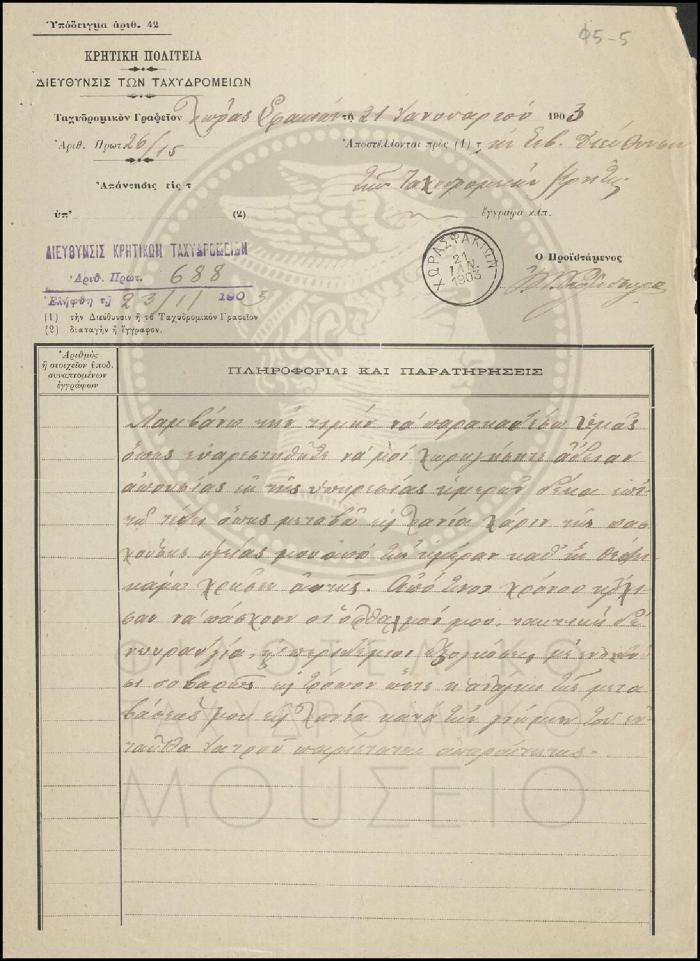 Ὑπόδειγμα ἀριθ. 42
Φ5-5
ΚΡΗΤΙΚΗ ΠΟΛΙΤΕΙΑ
ΔΙΕΥΘΥΝΣΙΣ ΤΩΝ ΤΑΧΥΔΡΟΜΕΙΩΝ
Ταχυδρομικὸν Γραφεῖον Χώρας Σφακίων τῇ 21 Ἰανουαρίου 1903
Ἀριθ. Πρωτ. 26/15 Ἀποστέλλονται πρὸς (1) τὴν Σεβ. Διεύθυνσιν
Ἀπάντησις εἰς τ τῶν Ταχυδρομείων Κρήτης
ὑπ' (2) ἔγγραφα κλπ.
ΔΙΕΥΘΥΝΣΙΣ ΚΡΗΤΙΚΩΝ ΤΑΧΥΔΡΟΜΕΙΩΝ
Ἀριθ. Πρωτ. 688
Ἐλήφθη τῇ 23/1/1903
ΧΩΡΑ ΣΦΑΚΙΩΝ
21
ΙΑΝ.
1903
Ὁ Προϊστάμενος
(1) τὴν Διεύθυνσιν ἢ τὸ Ταχυδρομικὸν Γραφεῖον
(2) διαταγὴν ἢ ἔγγραφον.
Ἀριθμὸς
ἢ στοιχεῖον ὑποδ.
συναπτομένων
ἐγγράφων
ΠΛΗΡΟΦΟΡΙΑΙ ΚΑΙ ΠΑΡΑΤΗΡΗΣΕΙΣ
Λαμβάνω τὴν τιμὴν νὰ παρακαλέσω ὑμᾶς
ὅπως εὐαρεστηθῆτε νὰ μοὶ χωρηγήσητε ἄδειαν
ἀπουσίας ἐκ τῆς ὑπηρεσίας ἡμερῶν δέκα ἐπὶ
τῷ τέλει ὅπως μεταβῶ εἰς Χανία χάριν τῆς πασ
χούσης ὑγείας μου ἀπὸ τὴν ἡμέραν καθ' ἣν θέλω
κάμω χρῆσιν αὐτῆς. Ἀπό τινος χρόνου ἤρχι
σαν νὰ πάσχουν οἱ ὀφθαλμοί μου,
σι σοβαρῶς εἰς τρόπον ὥστε ἡ ἀνάγκη τῆς μετα
βάσεώς μου εἰς Χανία κατὰ τὴν γνώμην τοῦ ἐν
ταῦθα ἰατροῦ παρίσταται ἀπαραίτητος.
ΦΙΛΟΤΕΛΙΚΟ
ΤΑΧΥΔΡΟΜΙΚΟ
ΜΟΥΣΕΙΟ